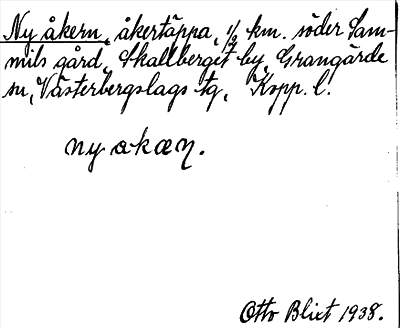 Ny åkern, åkertäppa, 1/2 km. söder Sam-
mils gård, Skallberget by, Grangärde
sn, Västerbergslags tg, Kopp. l.
ny akæɳ.
Otto Blixt 1938.